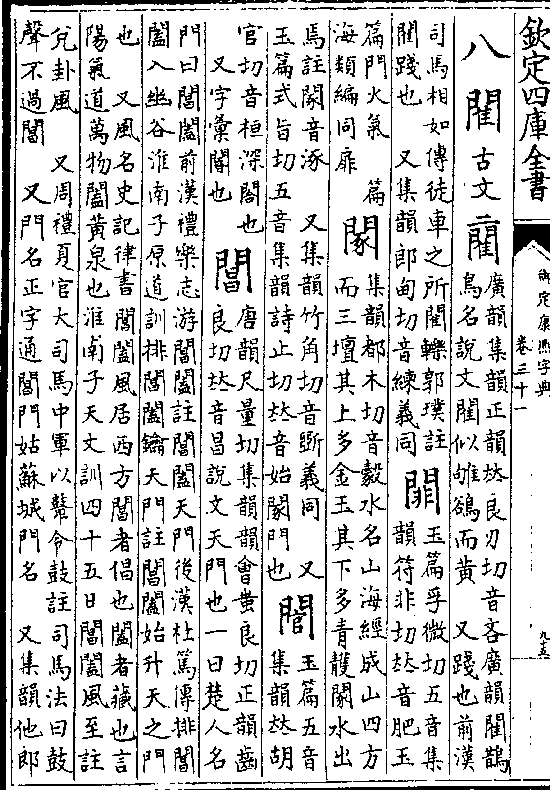 欽定四庫全書
御定康熙字典
卷三十一
九十五
八 閵 古文
廣韻集韻正韻𠀤良刃切音吝廣韻閵鵲
鳥名說文閵似鴝鵒而黃 又踐也前漢
司馬相如傳徒車之所閵轢郭璞註
閵踐也 又集韻郎甸切音練義同
玉篇孚微切五音集
韻符非切𠀤音肥玉
篇門火氣 篇
海類編同扉
集韻都木切音豰水名山海經成山四方
而三壇其上多金玉其下多青雘 水出
焉註 音涿 又集韻竹角切音斲義同 又
玉篇式旨切五音集韻詩止切𠀤音始 門也
玉篇五音
集韻𠀤胡
官切音桓深閣也
又字彙 也
閶
唐韻尺量切集韻韻會蚩良切正韻齒
良切𠀤音昌說文天門也一曰楚人名
門曰閶闔前漢禮樂志游閶闔註閶闔天門後漢杜篤傳排閶
闔入幽谷淮南子原道訓排閶闔鑰天門註閶闔始升天之門
也 又風名史記律書閶闔風居西方閶者倡也闔者藏也言
陽氣道萬物闔黃泉也淮南子天文訓四十五日閶闔風至註
兌卦風 又周禮夏官大司馬中軍以鼙令鼓註司馬法曰鼓
聲不過閶 又門名正字通閶門姑蘇城門名 又集韻他郎